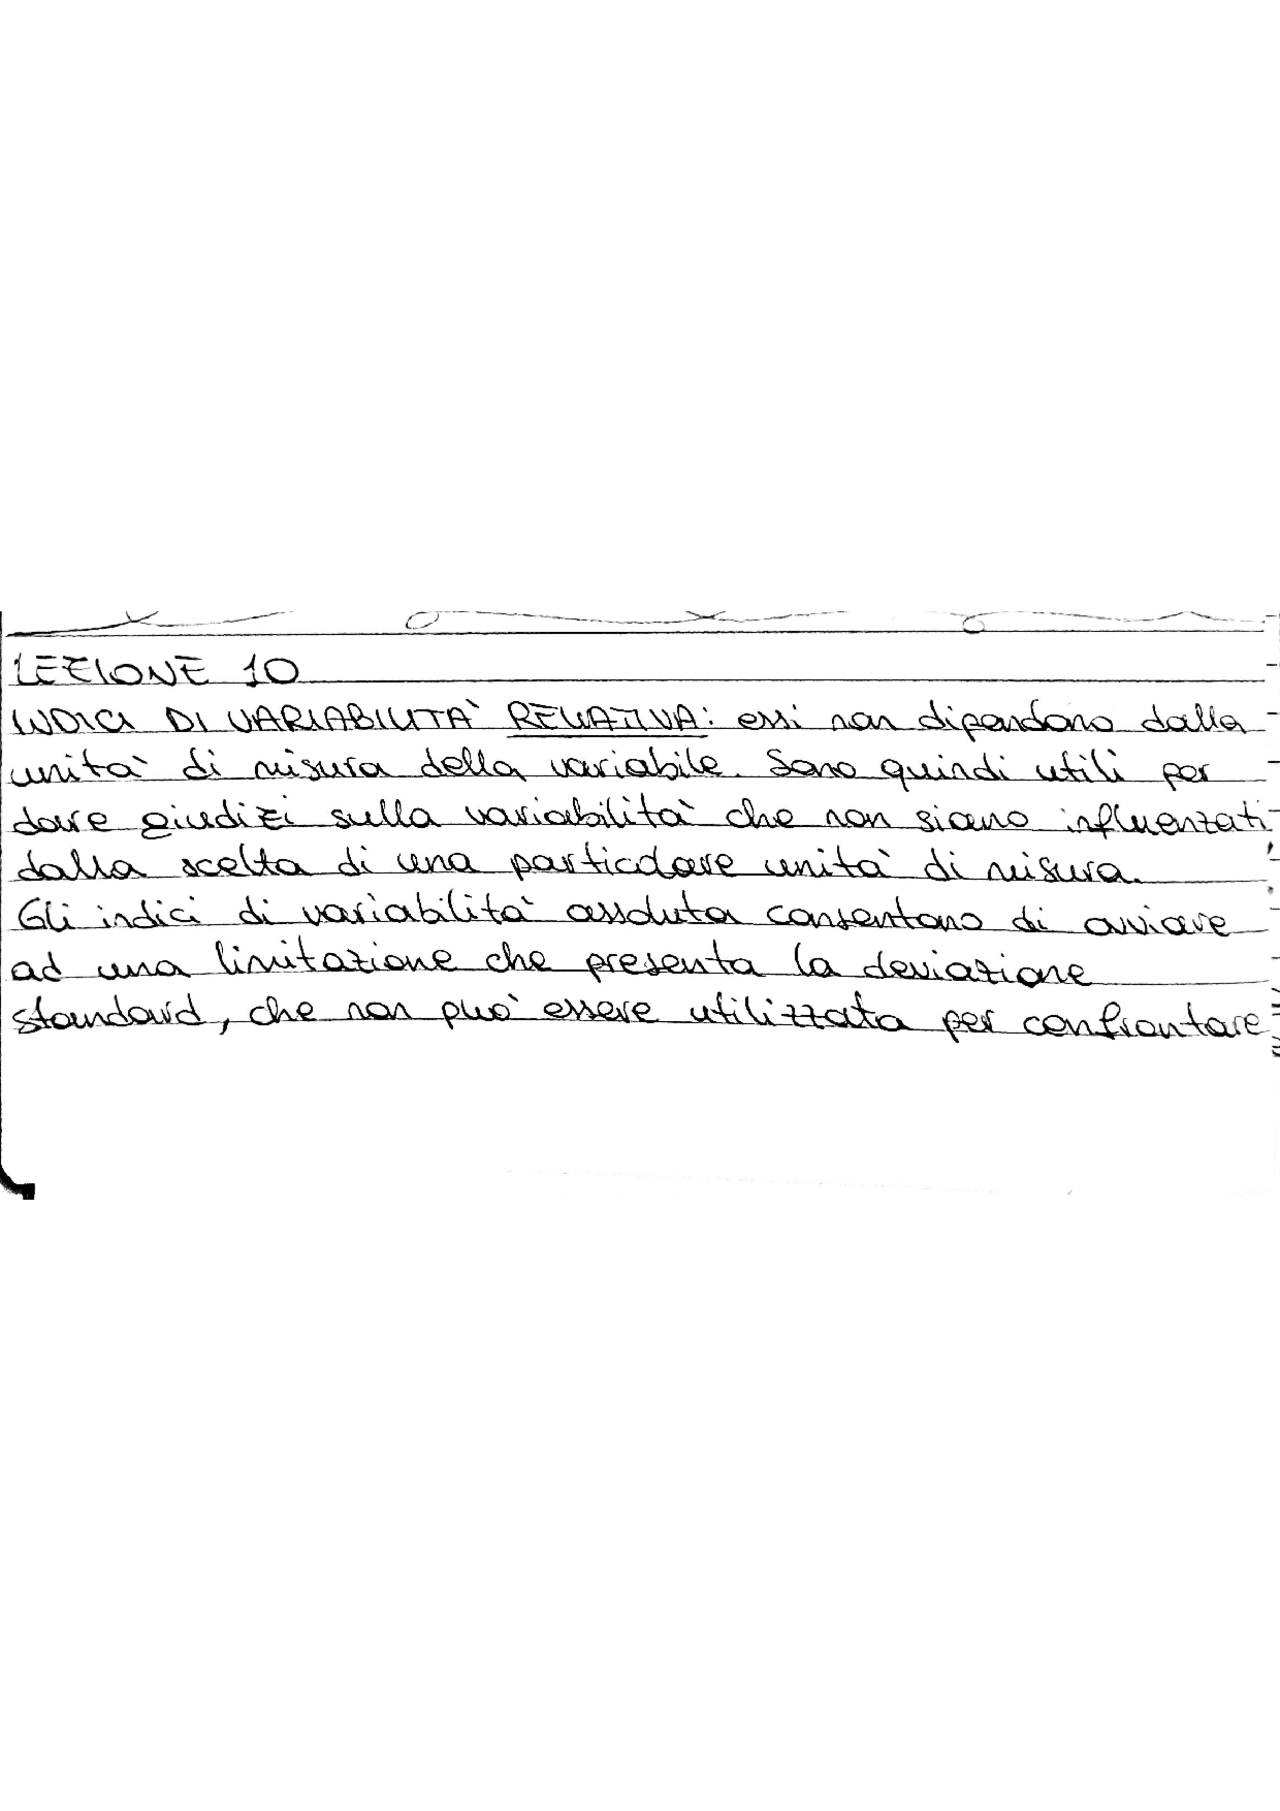 LEZIONE 10
INDICI DI VARIABILITA' RELATIVA: essi non dipendono dalla
unità di misura della variabile. Sono quindi utili per
dare giudizi sulla variabilità che non siano influenzati
dalla scelta di una particolare unità di misura.
Gli indici di variabilità assoluta consentono di ovviare
ad una limitazione che presenta la deviazione
standard, che non può essere utilizzata per confrontare